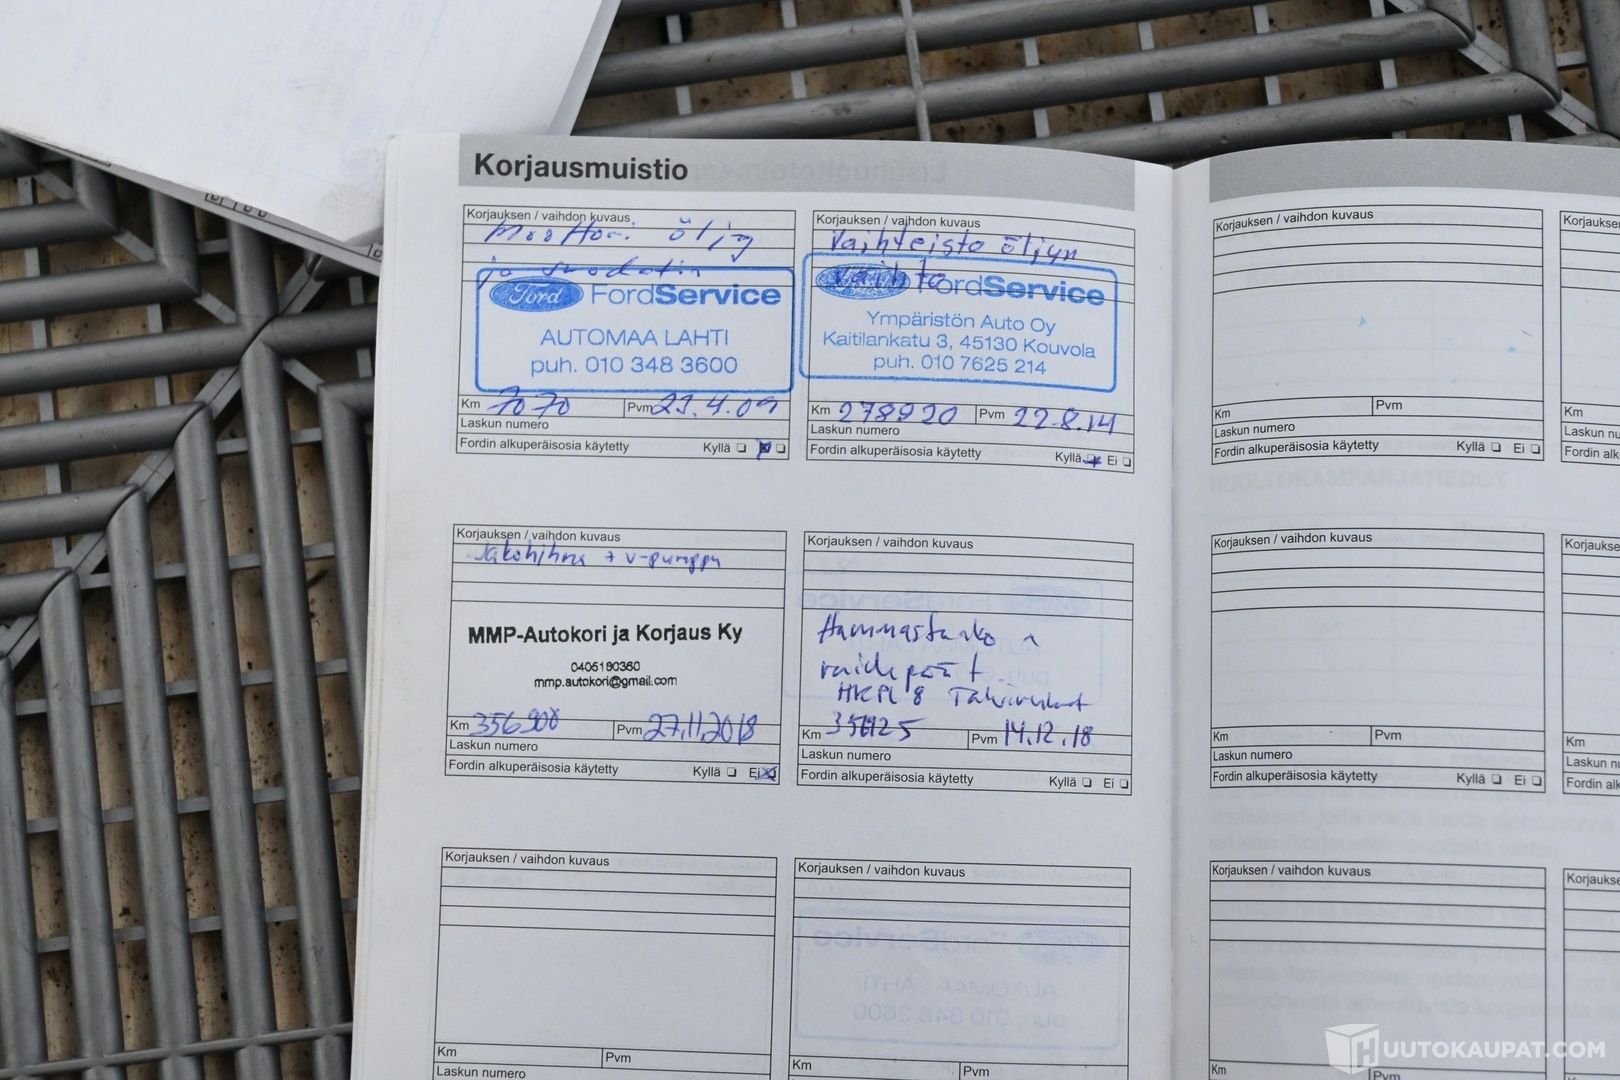 Korjausmuistio
Korjauksen / vaihdon kuvaus
Moottori öljy
ja suodatin
Ford FordService
AUTOMAA LAHTI
puh. 010 348 3600
Km 7070 Pvm 23.4.09
Laskun numero
Fordin alkuperäisosia käytetty Kyllä
Korjauksen / vaihdon kuvaus
Vaihteisto öljyn
vaihto
FordService
Ympäristön Auto Oy
Kaitilankatu 3, 45130 Kouvola
puh. 010 7625 214
Km 278920 Pvm 22.8.14
Laskun numero
Fordin alkuperäisosia käytetty Kyllä Ei
Korjauksen / vaihdon kuvaus
Jakohihna + v-pumppu
MMP-Autokori ja Korjaus Ky
0405190360
mmp.autokori@gmail.com
Km 356900 Pvm 27.11.2018
Laskun numero
Fordin alkuperäisosia käytetty Kyllä Ei
Korjauksen / vaihdon kuvaus
Hammastanko
raidepäät
HKPL 8 Talvirenkaat
Km Pvm 14.12.18
Laskun numero
Fordin alkuperäisosia käytetty Kyllä Ei
Korjauksen / vaihdon kuvaus
Km Pvm
Laskun numero
Korjauksen / vaihdon kuvaus
Km Pvm
Korjauksen / vaihdon kuvaus
Km Pvm
Laskun numero
Fordin alkuperäisosia käytetty Kyllä Ei
Korjauksen
Km
Laskun
Fordin
Korjauksen / vaihdon kuvaus
Km Pvm
Laskun numero
Fordin alkuperäisosia käytetty Kyllä Ei
Km
Laskun
Fordin
Korjauksen / vaihdon kuvaus
Km Pvm
HUUTOKAUPAT.COM